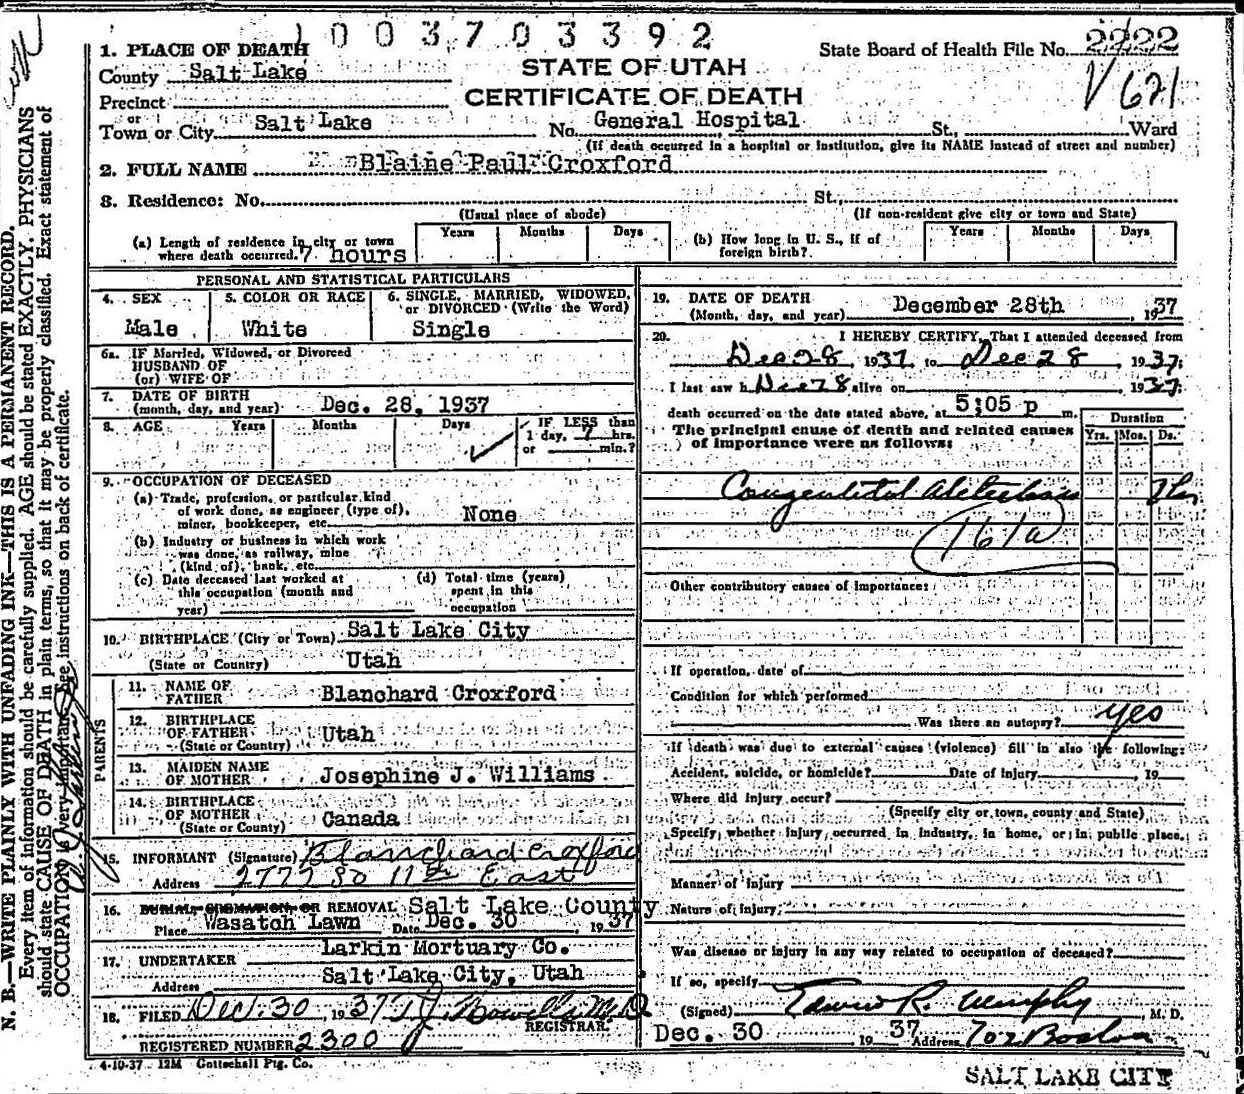 1003703392
1. PLACE OF DEATH
State Board of Health File No. 2222
County Salt Lake
STATE OF UTAH
V 621
Precinct
CERTIFICATE OF DEATH
or
Town or City Salt Lake No. General Hospital St., Ward
(If death occurred in a hospital or institution, give its NAME instead of street and number)
2. FULL NAME Blaine Paul Croxford
3. Residence: No. St.,
(Usual place of abode) (If non-resident give city or town and State)
(a) Length of residence in city or town where death occurred. 7 hours Years Months Days
(b) How long in U. S., if of foreign birth? Years Months Days
PERSONAL AND STATISTICAL PARTICULARS
4. SEX Male
5. COLOR OR RACE White
6. SINGLE, MARRIED, WIDOWED, or DIVORCED (Write the Word) Single
6a. IF Married, Widowed, or Divorced
HUSBAND OF
(or) WIFE OF
7. DATE OF BIRTH
(month, day, and year) Dec. 28, 1937
8. AGE Years Months Days IF LESS than
1 day, 7 hrs.
or min.?
9. OCCUPATION OF DECEASED
(a) Trade, profession, or particular kind
of work done, as engineer (type of),
miner, bookkeeper, etc. None
(b) Industry or business in which work
was done, as railway, mine
(kind of), bank, etc.
(c) Date deceased last worked at
this occupation (month and
year)
(d) Total time (years)
spent in this
occupation
10. BIRTHPLACE (City or Town) Salt Lake City
(State or Country) Utah
PARENTS
11. NAME OF
FATHER Blanchard Croxford
12. BIRTHPLACE
OF FATHER
(State or Country) Utah
13. MAIDEN NAME
OF MOTHER Josephine J. Williams
14. BIRTHPLACE
OF MOTHER
(State or Country) Canada
15. INFORMANT (Signature) Blanchard Croxford
Address 2772 So 11th East
16. BURIAL, CREMATION, OR REMOVAL Salt Lake County
Place Wasatch Lawn Date Dec. 30 1937
17. UNDERTAKER Larkin Mortuary Co.
Address Salt Lake City, Utah
18. FILED Dec. 30 1937 T. J. Howells M.D.
REGISTRAR.
REGISTERED NUMBER 2300
4-10-37 12M Gottschall Ptg. Co.
19. DATE OF DEATH
(Month, day, and year) December 28th 1937
20. I HEREBY CERTIFY, That I attended deceased from
Dec 28, 1937, to Dec 28, 1937;
I last saw h Dec 28 alive on 1937;
death occurred on the date stated above, at 5:05 p m.
The principal cause of death and related causes
of importance were as follows:
Duration
Yrs. Mos. Ds.
Congenital Atelectasis
161a
Other contributory causes of importance:
If operation, date of
Condition for which performed
Was there an autopsy? yes
If death was due to external causes (violence) fill in also the following:
Accident, suicide, or homicide? Date of injury , 19
Where did injury occur?
(Specify city or town, county and State)
Specify whether injury occurred in industry, in home, or in public place.
Manner of injury
Nature of injury
Was disease or injury in any way related to occupation of deceased?
If so, specify
(Signed) R. Murphy, M. D.
Dec. 30 1937 Address
SALT LAKE CITY
N. B.—WRITE PLAINLY WITH UNFADING INK—THIS IS A PERMANENT RECORD.
Every item of information should be carefully supplied. AGE should be stated EXACTLY. PHYSICIANS
should state CAUSE OF DEATH in plain terms, so that it may be properly classified. Exact statement of
OCCUPATION is very important. See instructions on back of certificate.